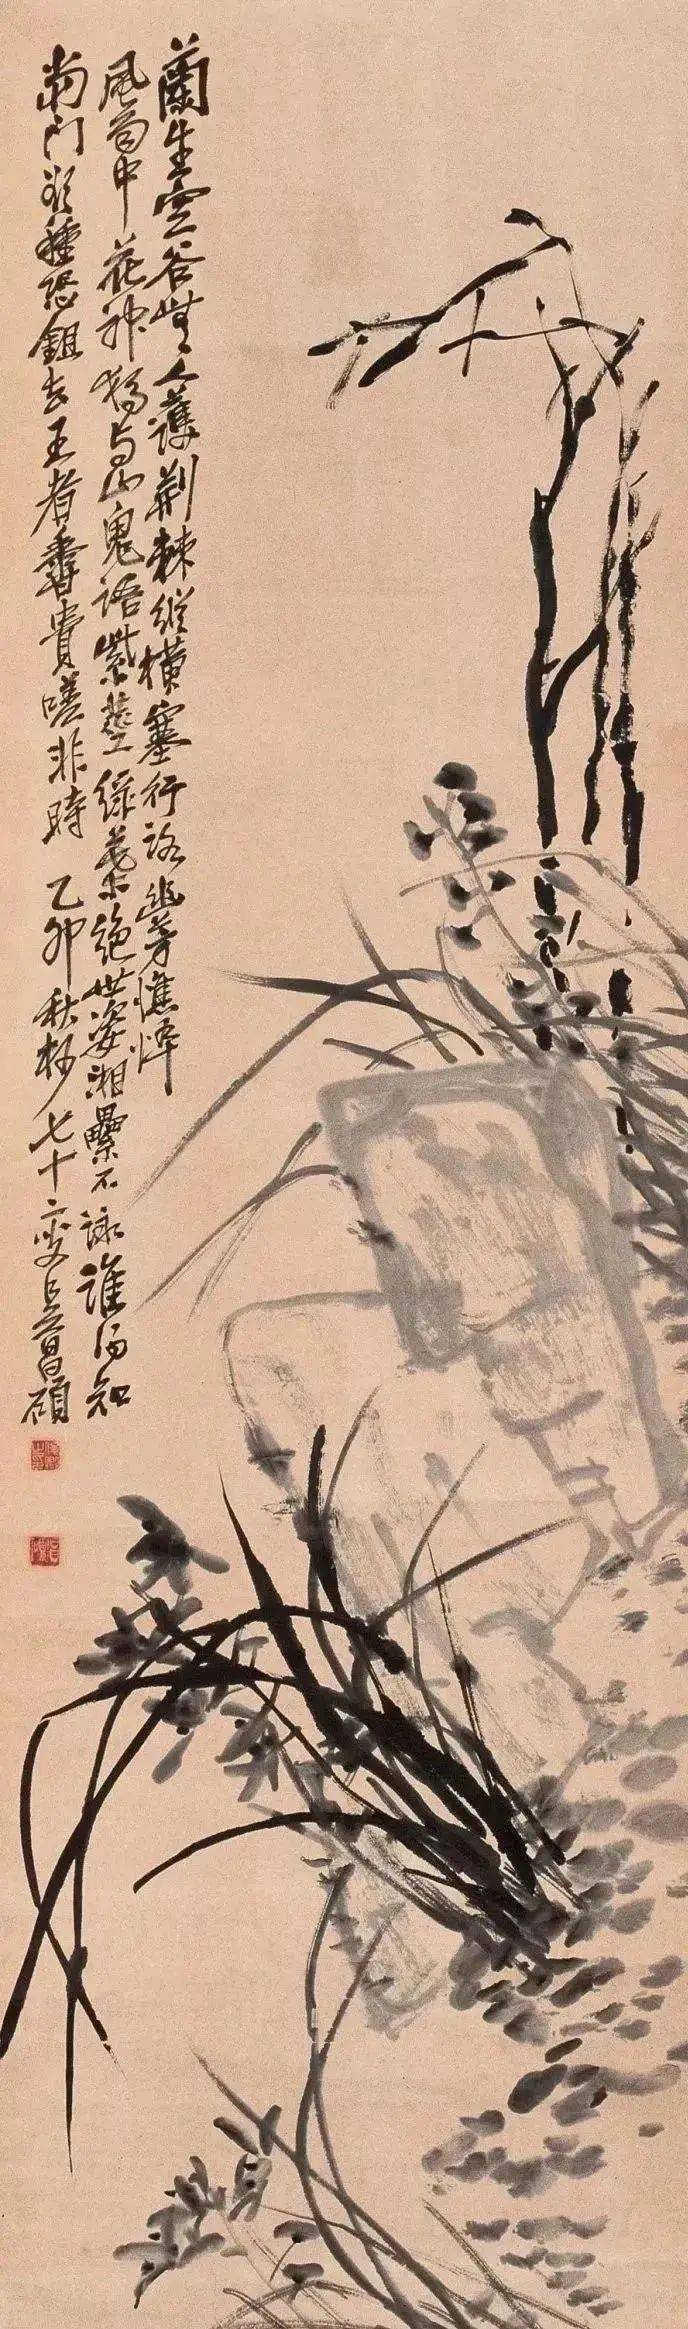 蘭生空谷無人護荆棘縱橫塞行路幽芳憔悴
風雨中花神猶與山鬼語紫莖綠葉絕世姿湘纍不詠誰得知
當門欲種恐鉏去王者香貴嗟非時 乙卯秋杪七十二叟吳昌碩